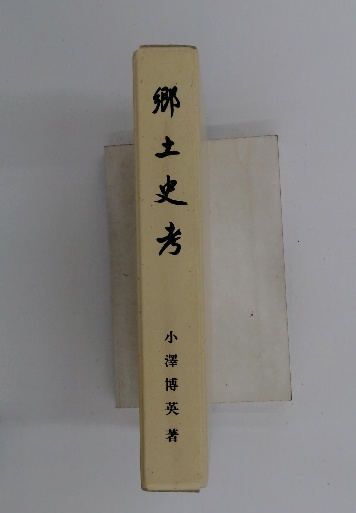 郷土史考
小澤博英著